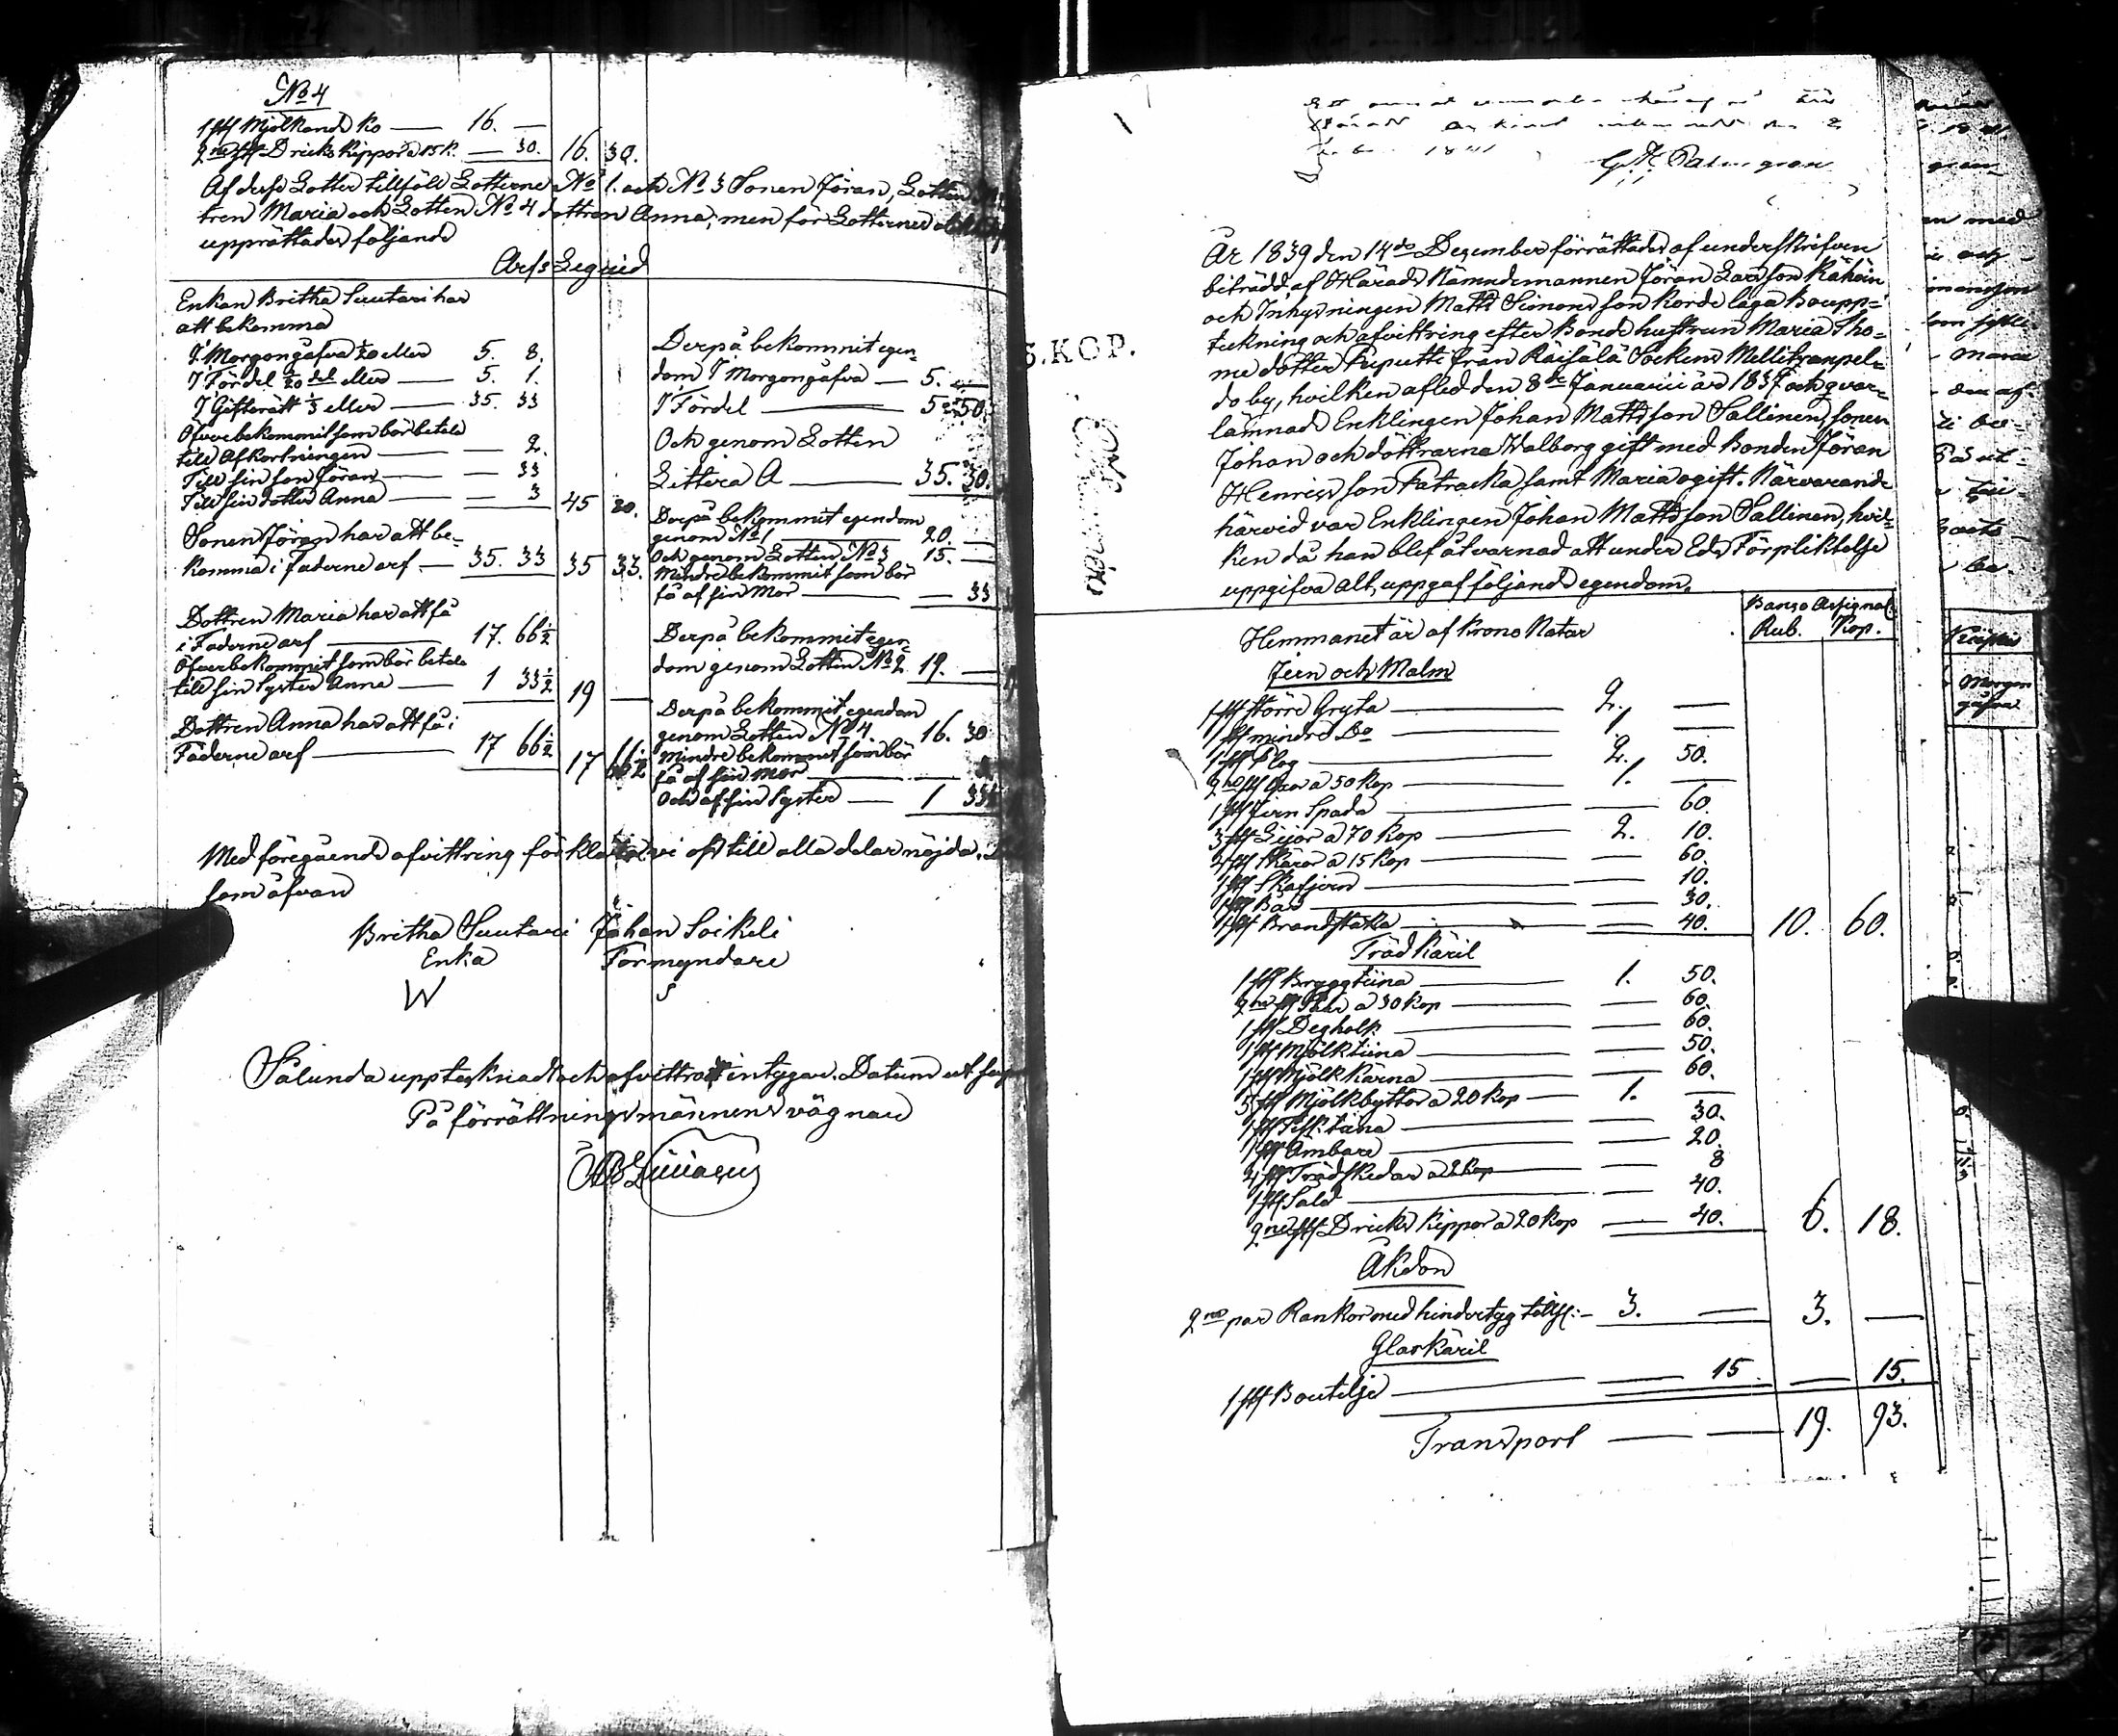 No 4
1 st Mjölkande ko — 16. —
2ne st Dricks kippor a 15 k. — 30. 16. 30.
Af dess Lotter tillföll Lotterne No 1. och No 3 Sonen Jöran, Lotten
tren Maria och Lotten No 4 dottren Anna; men för Lotternes
upprättades följande
Arfs Liquid
Enkan Britha Suutari har
att bekomma
I Morgongåfva 1/20 eller 5. 8.
I Fördel 1/20 del eller — 5. 1.
I Gifterätt 1/3 eller — 35. 33
Öfverbekommit som bör betala
till Afkortningen — — 2.
Till sin son Jöran — — 33
Till sin dotter Anna — — 3 45 80.
Sonen Jöran har att be-
komma i Faderne arf — 35. 33 35 33.
Dottren Maria har att få
i Faderne arf — 17. 66½
Öfverbekommit som bör betala
till sin Syster Anna — 1 33½ 19 —
Dottren Anna har att få i
Faderne arf — 17 66½ 17 66½
Derpå bekommit egen-
dom I Morgongåfva — 5. —
I Fördel — 5 50.
Och genom Lotten
Littera A — 35. 30.
Derpå bekommit egendom
genom No 1 — 20. —
Och genom Lotten No 3 15. —
Mindre bekommit som bör
få af sin Mor — — 33
Derpå bekommit egen-
dom genom Lotten No 2 19. —
Derpå bekommit egendom
genom Lotten No 4. 16. 30
Mindre bekommit som bör
få af sin Mor —
Och af sin Syster — 1 33½
Med föregående afvittring förklara vi oss till alla delar nöjda.
som ofvan
Britha Suutari Johan Soikeli
Enka Förmyndare
W S
Sålunda upptecknadt och afvittrat intygar. Datum ut
På förrättningsmännens vägnar
1841
G. Palmgren
5. KOP.
År 1839 den 14de December förrättades af underskrifven
biträdd af Härads Nämndemannen Jöran Larsson Kähöin
och Inhysningen Matts Simonsson Korde laga Bouppteckning
och afvittring efter Bonde hustrun Maria Tho-
me dotter Puputti från Räisälä Sockens Mellitsanpel-
do by, hvilken afled den 8de Januarii år 1837 och qvar-
lämnade Enklingen Johan Mattsson Sallinen, sonen
Johan och döttrarna Walborg gift med Bonden Jöran
Henricsson Patracka samt Maria ogift. Närvarande
härvid var Enklingen Johan Mattsson Sallinen, hvil-
ken då han blef åtvarnad att under Eds Förpliktelse
uppgifva alt, uppgaf följande egendom.
Banco Assignat:
Rub. Kop.
Hemmanet är af Krono Natur
Jern och Malm
1 st större Gryta — 2. —
1 st mindre Do — 1 —
1 st Plog — 2. 50.
2ne st Oxor a 50 kop — 1. —
1 st Jern Spada — — 60.
3 st Lijor a 70 kop — 2. 10.
4 st Skäror a 15 kop — — 60.
1 st Skafjern — — 10.
1 st — — 30.
1 st Brandstaka — — 40. 10. 60.
Träd Käril
1 st Bryggtiina — 1. 50.
2ne st a 30 kop — — 60.
1 st Degholk — — 60.
1 st Mjölktiina — — 50.
1 st Mjölk Kärna — — 60.
5 st Mjölkbyttor a 20 kop — 1. —
1 st tiina — — 30.
1 st Ämbare — — 20.
4 st Trädskedar a 2 kop — — 8
1 st Såld — — 40.
2ne st Dricks kippor a 20 kop — 40. 6. 18.
Åkdon
2ne par Rankor med hindertyg — 3. — 3. —
Glas Käril
1 st Boutelje — — 15 — 15.
Transport — — 19. 93.